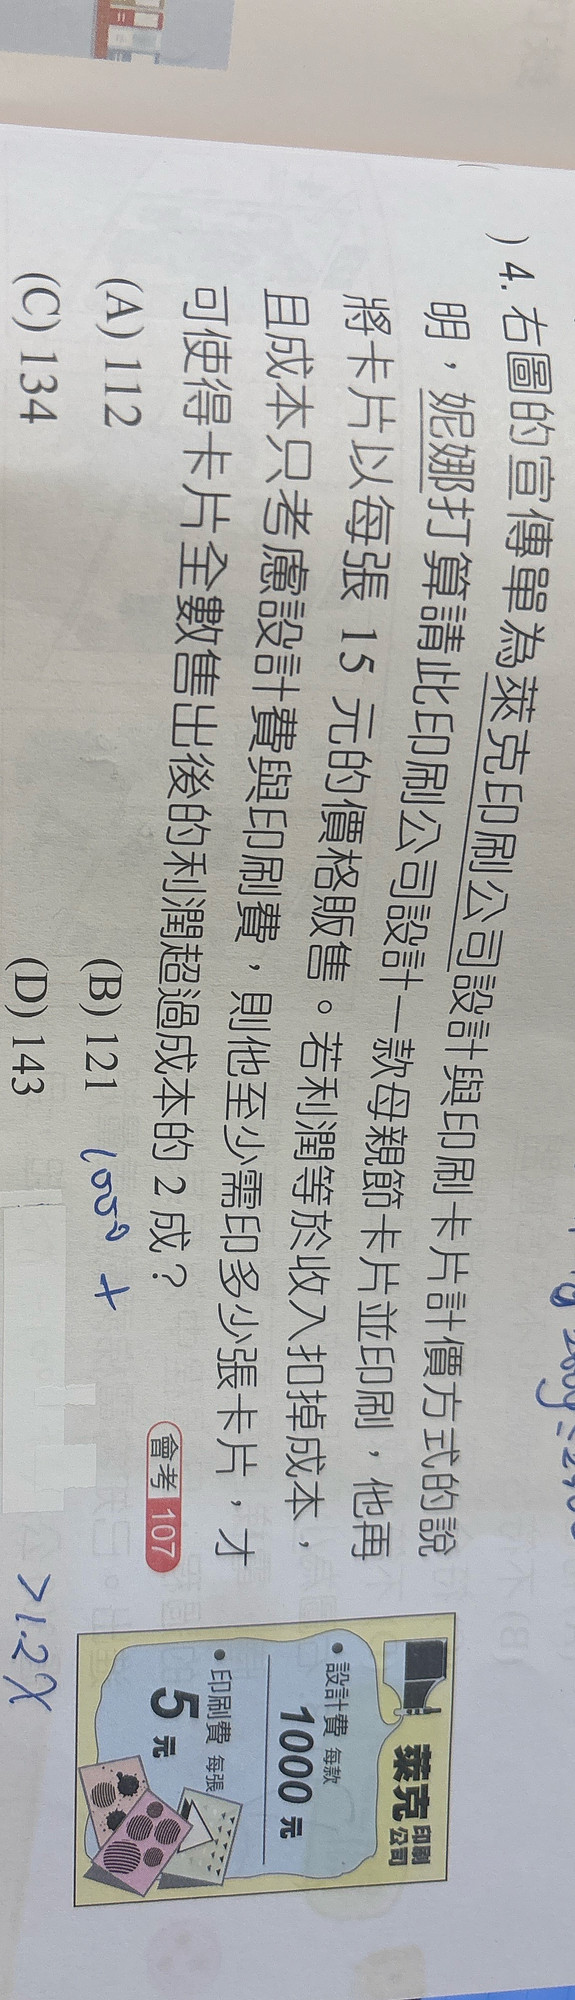 ) 4. 右圖的宣傳單為萊克印刷公司設計與印刷卡片計價方式的說
明，妮娜打算請此印刷公司設計一款母親節卡片並印刷，他再
將卡片以每張 15 元的價格販售。若利潤等於收入扣掉成本，
且成本只考慮設計費與印刷費，則他至少需印多少張卡片，才
可使得卡片全數售出後的利潤超過成本的 2 成？
會考 107
(A) 112
(B) 121
(C) 134
(D) 143
1000 +
>1.2X
萊克 印刷公司
•設計費 每款
1000 元
•印刷費 每張
5 元